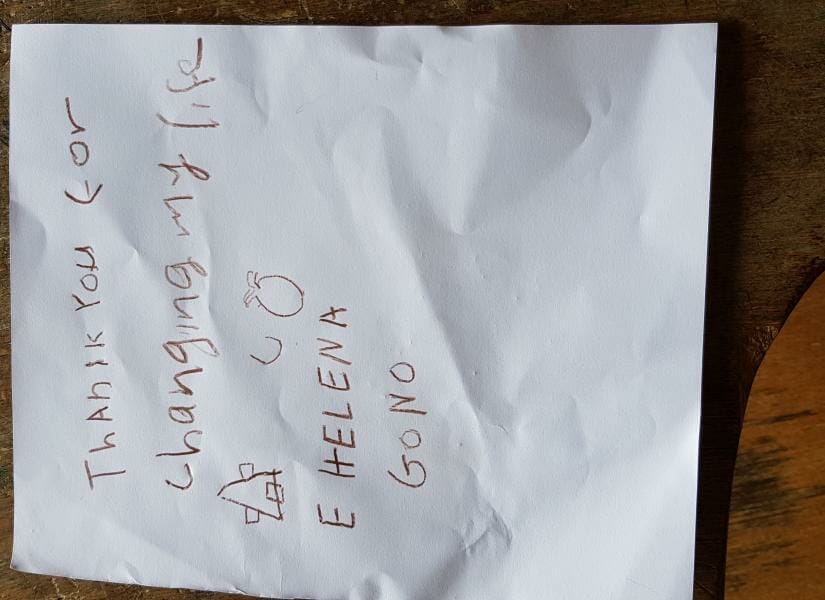 Thank You for
changing my life
E HELENA
GONO